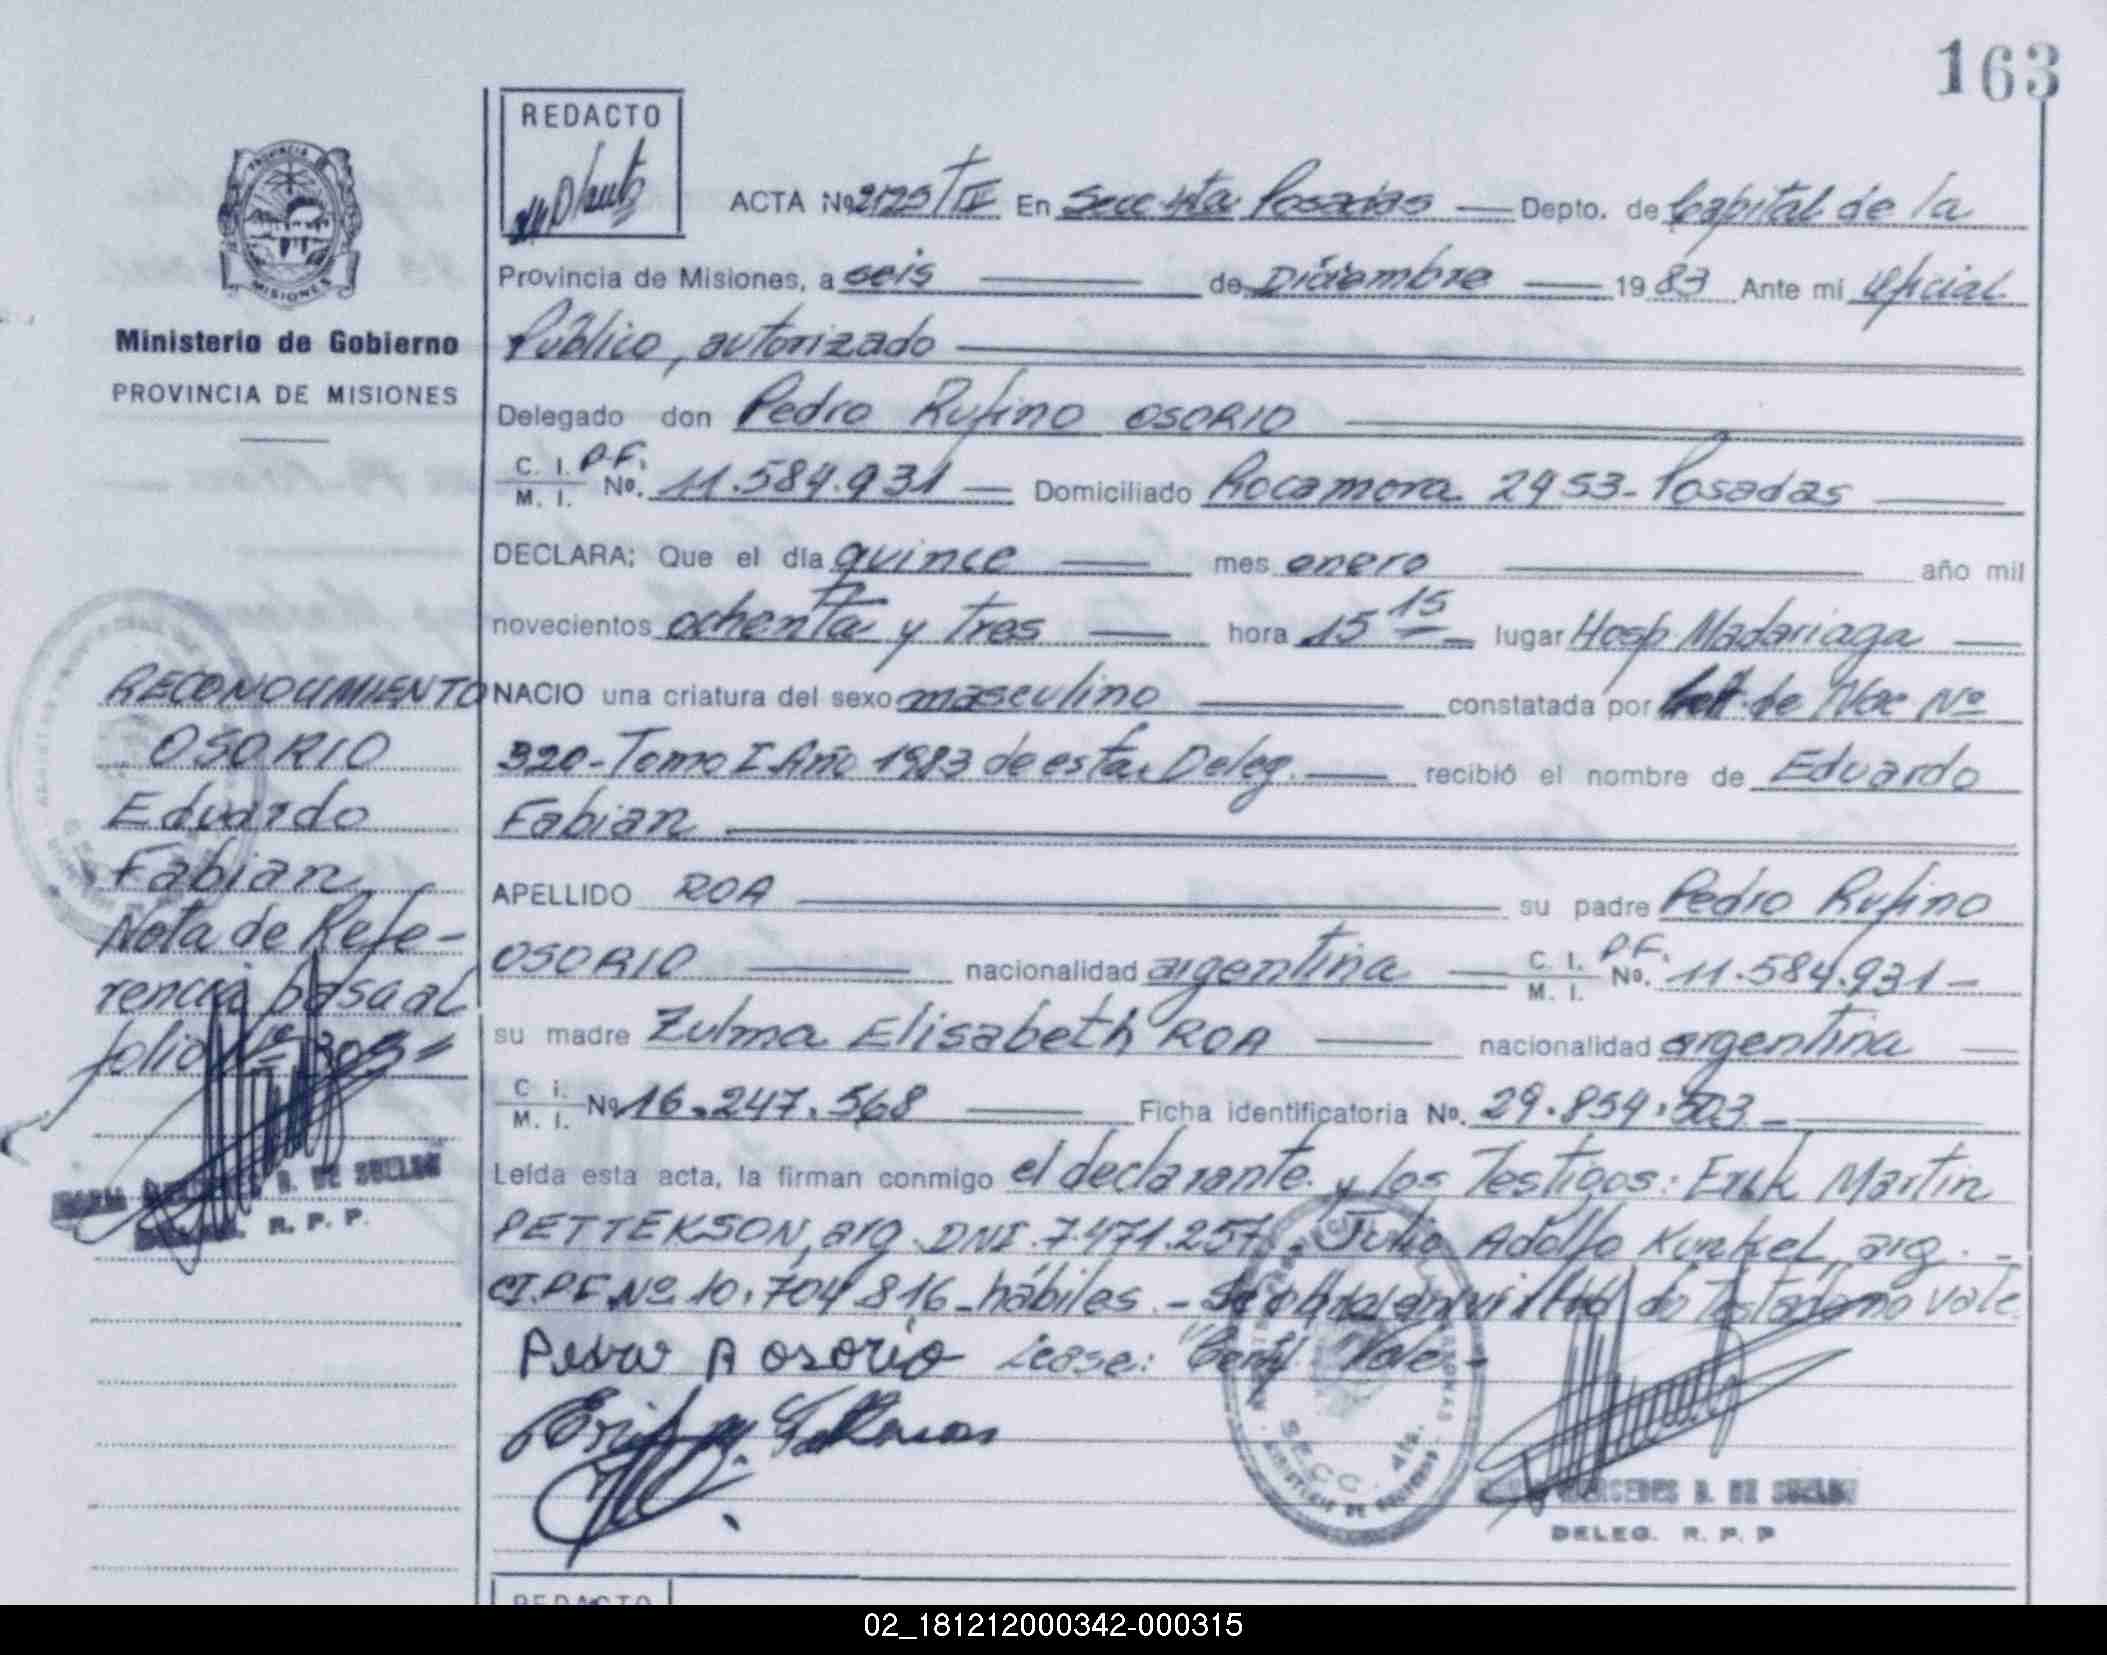 163
REDACTO
ACTA Nº 2125/TII En Secc 4ta Posadas Depto. de Capital de la
Provincia de Misiones, a seis de Diciembre 1983 Ante mí Oficial
Público, autorizado
Delegado don Pedro Rufino OSORIO
C. I. P.F.
M. I. No. 11.584.931 Domiciliado Rocamora 2953 - Posadas
DECLARA: Que el día quince mes enero año mil
novecientos ochenta y tres hora 15 15 lugar Hosp. Madariaga
NACIO una criatura del sexo masculino constatada por de Nac Nº
320 - Tomo I Año 1983 de esta Deleg. recibió el nombre de Eduardo
Fabian
APELLIDO ROA su padre Pedro Rufino
OSORIO nacionalidad argentina C. I. P.F.
M. I. No. 11.584.931 -
su madre Zulma Elisabeth ROA nacionalidad argentina
C i.
M. I. Nº 16.247.568 Ficha identificatoria No. 29.854.503 -
Leída esta acta, la firman conmigo el declarante y los Testigos: Erik Martin
PETTERSON, arg. DNI. 7.471.257, Julio Adolfo Kunkel, arg. -
CI.PF.Nº 10.704.816 - hábiles. - Testado no vale
Pedro R Osorio Lease: "Certif" Vale -
SECC. 4ta.
MERCEDES B. DE
DELEG. R. P. P
PROVINCIA DE
MISIONES
Ministerio de Gobierno
PROVINCIA DE MISIONES
RECONOCIMIENTO
OSORIO
Eduardo
Fabian
Nota de Refe-
rencia pasa al
folio Nº
B. DE
R. P. P.
REDACTO
02_181212000342-000315